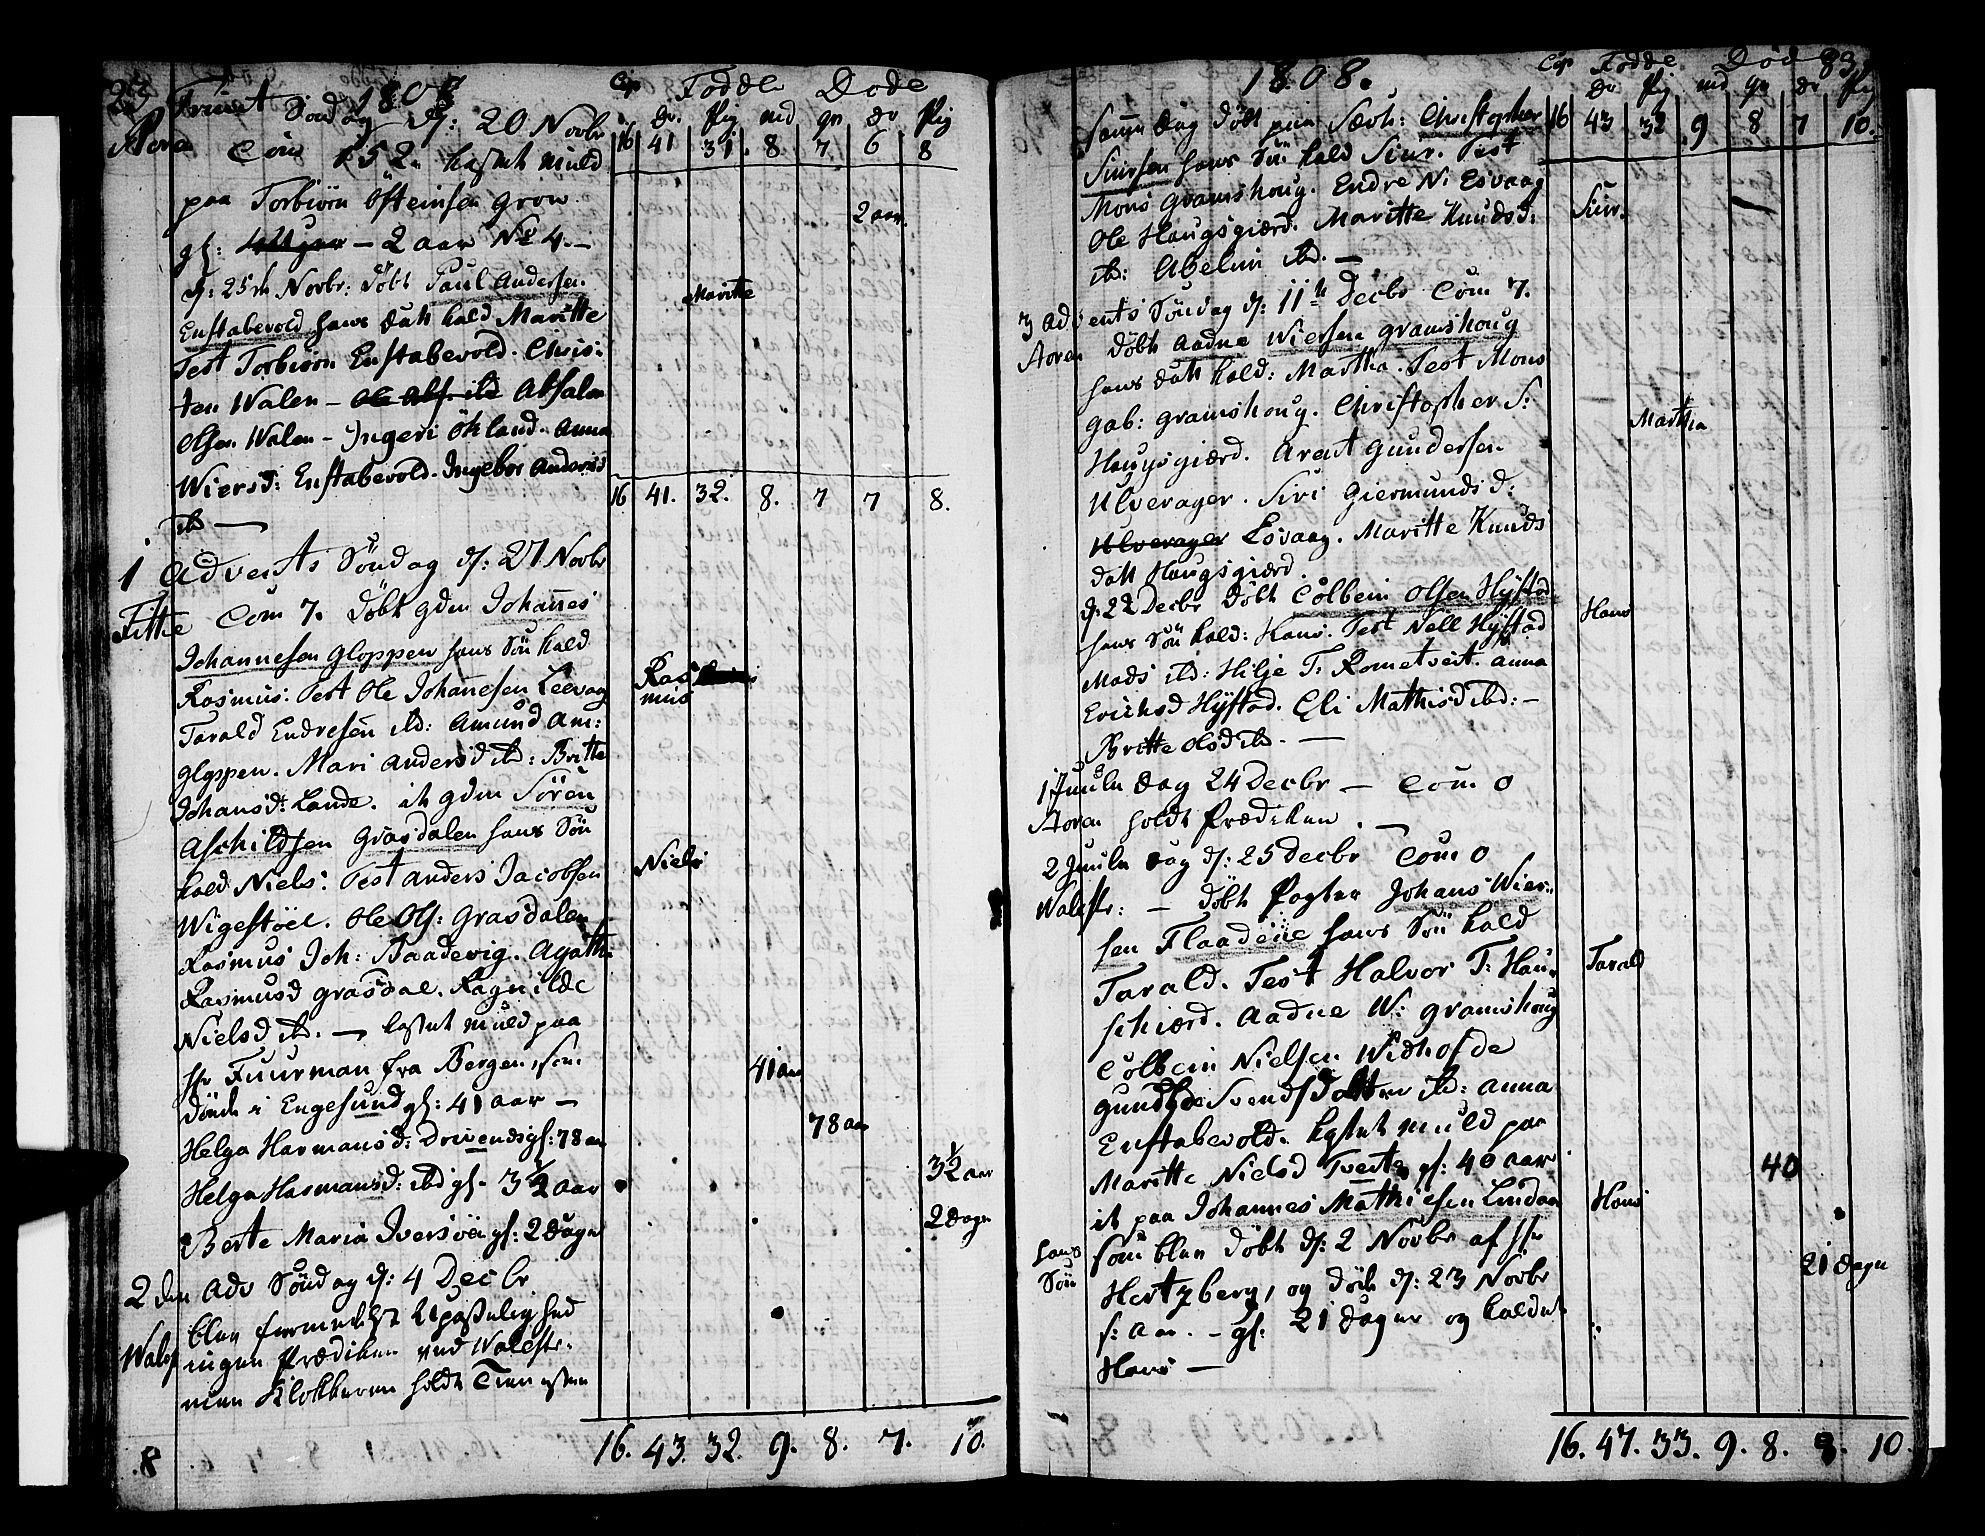 23 Trinit Søndag 1808 d: 20 Novbr
Støren Com 52. kastet muld
paa Torbiörn Östeinsen Grow
gl: 2 aar No 4. –
d: 25de Novbr: döbt Paul Andersen
Enstabevold hans datt kald Maritte
Test Torbiörn Enstabevold. Chris:
ten Walen – Ole Abs. ibd Absalon
Olsen Walen – Ingeri Ökland – Anna
Wiersd: Enstabevold. Ingebor Andersd
ibd —
1 Advents Söndag d: 27 Novbr
Fittie Com 7. döbt gdm Johannes
Johannesen Gloppen hans Sön kald
Rasmus: Test Ole Johannesen Leevag
Tarald Endresen ibd: Amund Am:
Gloppen. Mari Andersd ibd: Britte
Johansd: Lande. it gdm Sören
Aschildsen Grasdalen hans Sön
kald Niels: Test Anders Jacobsen
Wigestöel. Ole Ols: Grasdalen
Rasmus Joh: Baadevig. Agathe
Rasmusd Grasdal. Ragnilde
Nielsd ibd. — kastet muld paa
Hr Fuurman fra Bergen, som
döde i Engesund gl: 41 aar –
Helga Harmansd: Drivends gl: 78 aar
Helga Harmansd: ibd gl: 3½ aar
Berte Maria Iversöen gl: 2 dager
2 den Adv Söndag d: 4 Decbr
blev formedelst Upasselighed
Walestr ingen Prædiken ved Walestr.
men Klokkeren holdt Tienesten
8
Cop Födde Döde
dr. Pig md qv dr Pig
16 41 31. 8 7 6 8
2 aar.
Maritte
16 41. 32. 8. 7 7 8.
Ras
mus
Niels
41 aar
78 aar
3½ aar
2 dage
16. 43. 32. 9. 8. 7. 10.
1808.
samme dag döbt Christopher
Siursen hans Sön kald Siur. Test
Mons Gramshoug. Endre N: Esvaag
Ole Haugsgierd. Maritte Knudsd:
ibd: Abelun ibd. –
3 Advents Söndag d: 11te Decbr Com 7.
Støren döbt Aadne Wiersen Gramshoug
hans datt kald: Martha. Test Mons
Gab: Gramshoug. Christopher S:
Haugsgiærd. Arent Gundersen
Ulverager. Siri Giermundsd:
Ulverager Esvaag. Maritte Knuds
datt Haugsgierd.
d: 22 Decbr döbt Colbein Olsen Hÿstad
hans Sön kald: Hans. Test Nell Hÿstad
Mads ibd: Hilje T: Rometveit. Anna
Erichsd Hÿstad. Eli Mathisd ibd: –
Britte Olsd ibd. —
1 Juule dag 24 Decbr — Com 0
Støren holdt Prædiken. —
2 Juule dag d: 25 Decbr Com 0
Walestr: – döbt Pagter Johans Wier:
sen Flaadene hans Sön kald
Tarald. Test Halvor T: Hau
schiærd. Aadne W: Gramshoug
Colbein Nielsen Widhofde
Svends Datter ibd: Anna
Enstabevold. kastet muld paa
Maritte Nielsd Tvert gl: 40 aar
it paa Johannes Mathiesen Lindaas
hans
Sön
som blev döbt d: 2 Novbr af Hr
Hertzberg, og döde d: 23 Novbr
s: Aar. – gl: 21 dager og kaldet
Hans —
Cop Födde. Död 83
dr Pig md qv dr Pig
16 43 32 9 8 7 10.
Siur.
Martha
Hans
Tarald
40
Hans
21 dage
16. 47. 33. 9. 8. 8. 10.